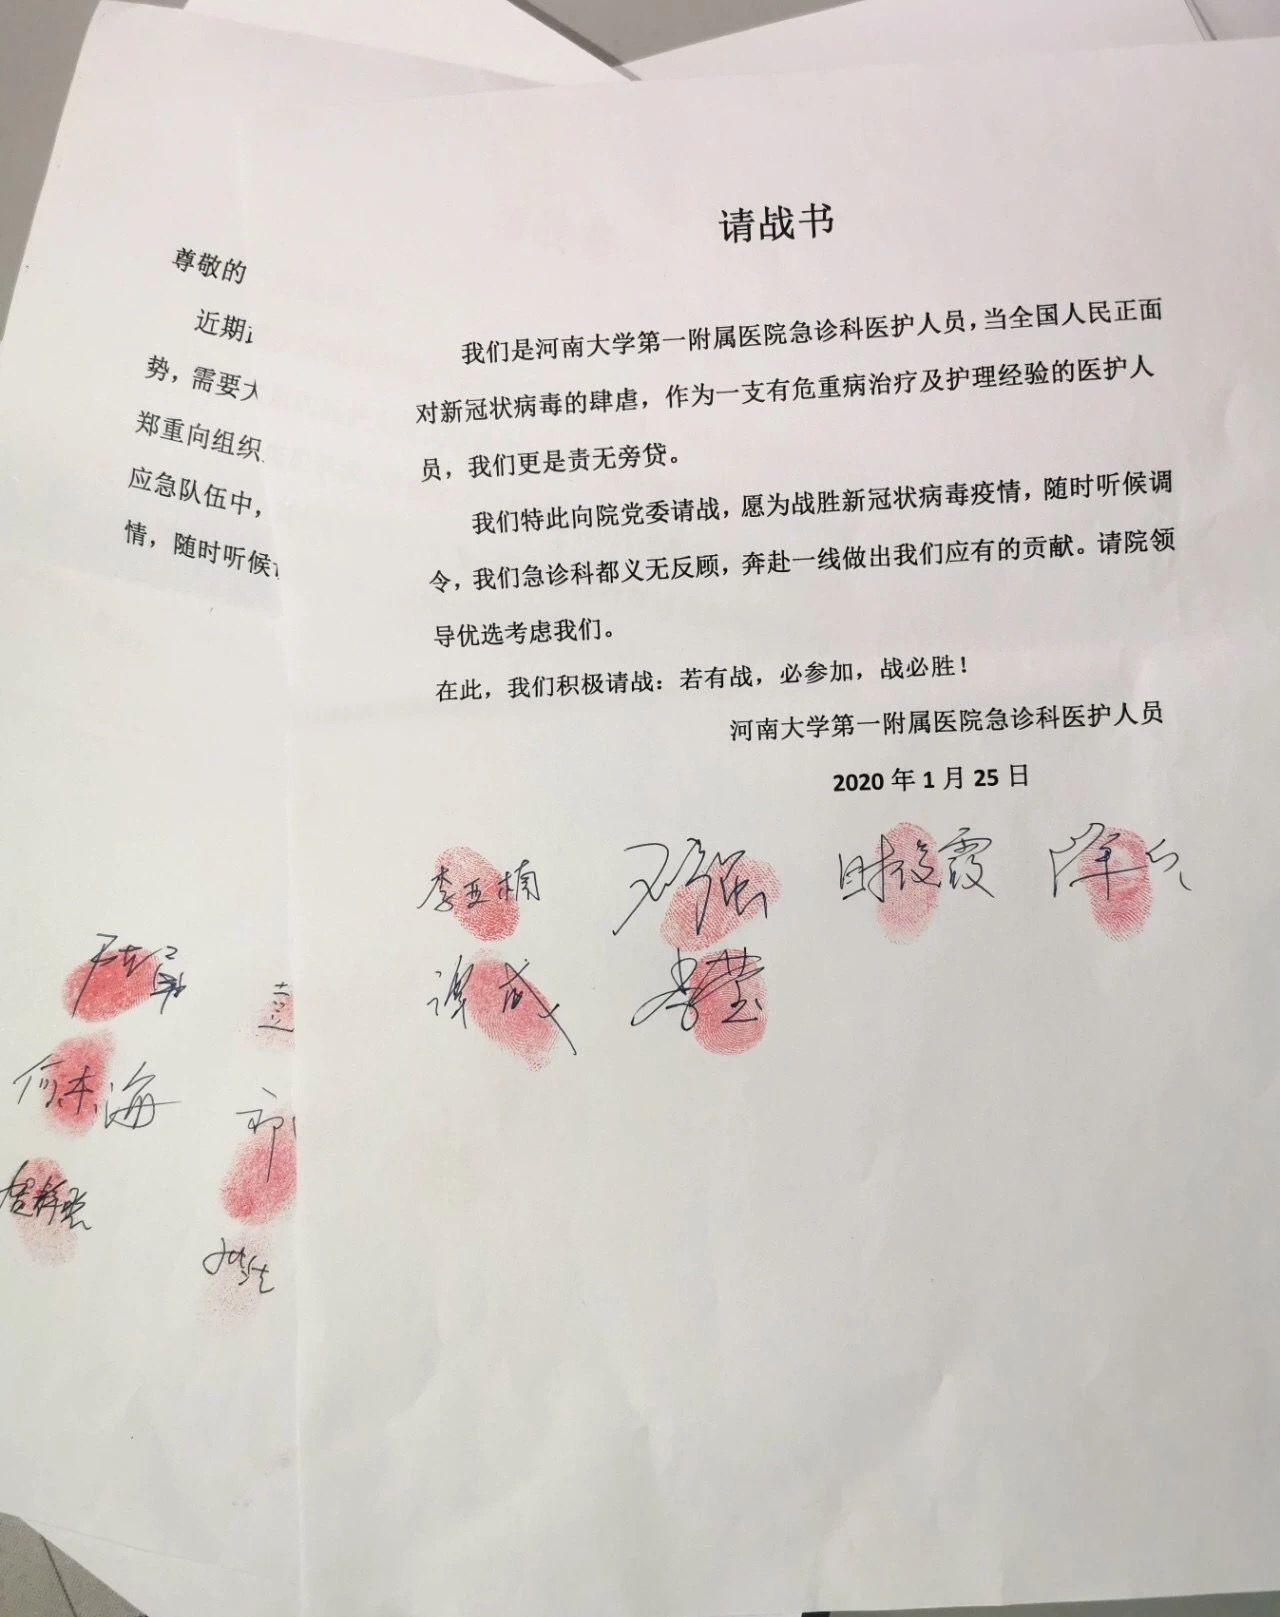 请战书
我们是河南大学第一附属医院急诊科医护人员，当全国人民正面
对新冠状病毒的肆虐，作为一支有危重病治疗及护理经验的医护人
员，我们更是责无旁贷。
我们特此向院党委请战，愿为战胜新冠状病毒疫情，随时听候调
令，我们急诊科都义无反顾，奔赴一线做出我们应有的贡献。请院领
导优选考虑我们。
在此，我们积极请战：若有战，必参加，战必胜！
河南大学第一附属医院急诊科医护人员
2020 年 1 月 25 日
李亚楠
谭成
李莹
尊敬的
近期
势，需要大
郑重向组织
应急队伍中，
情，随时听候